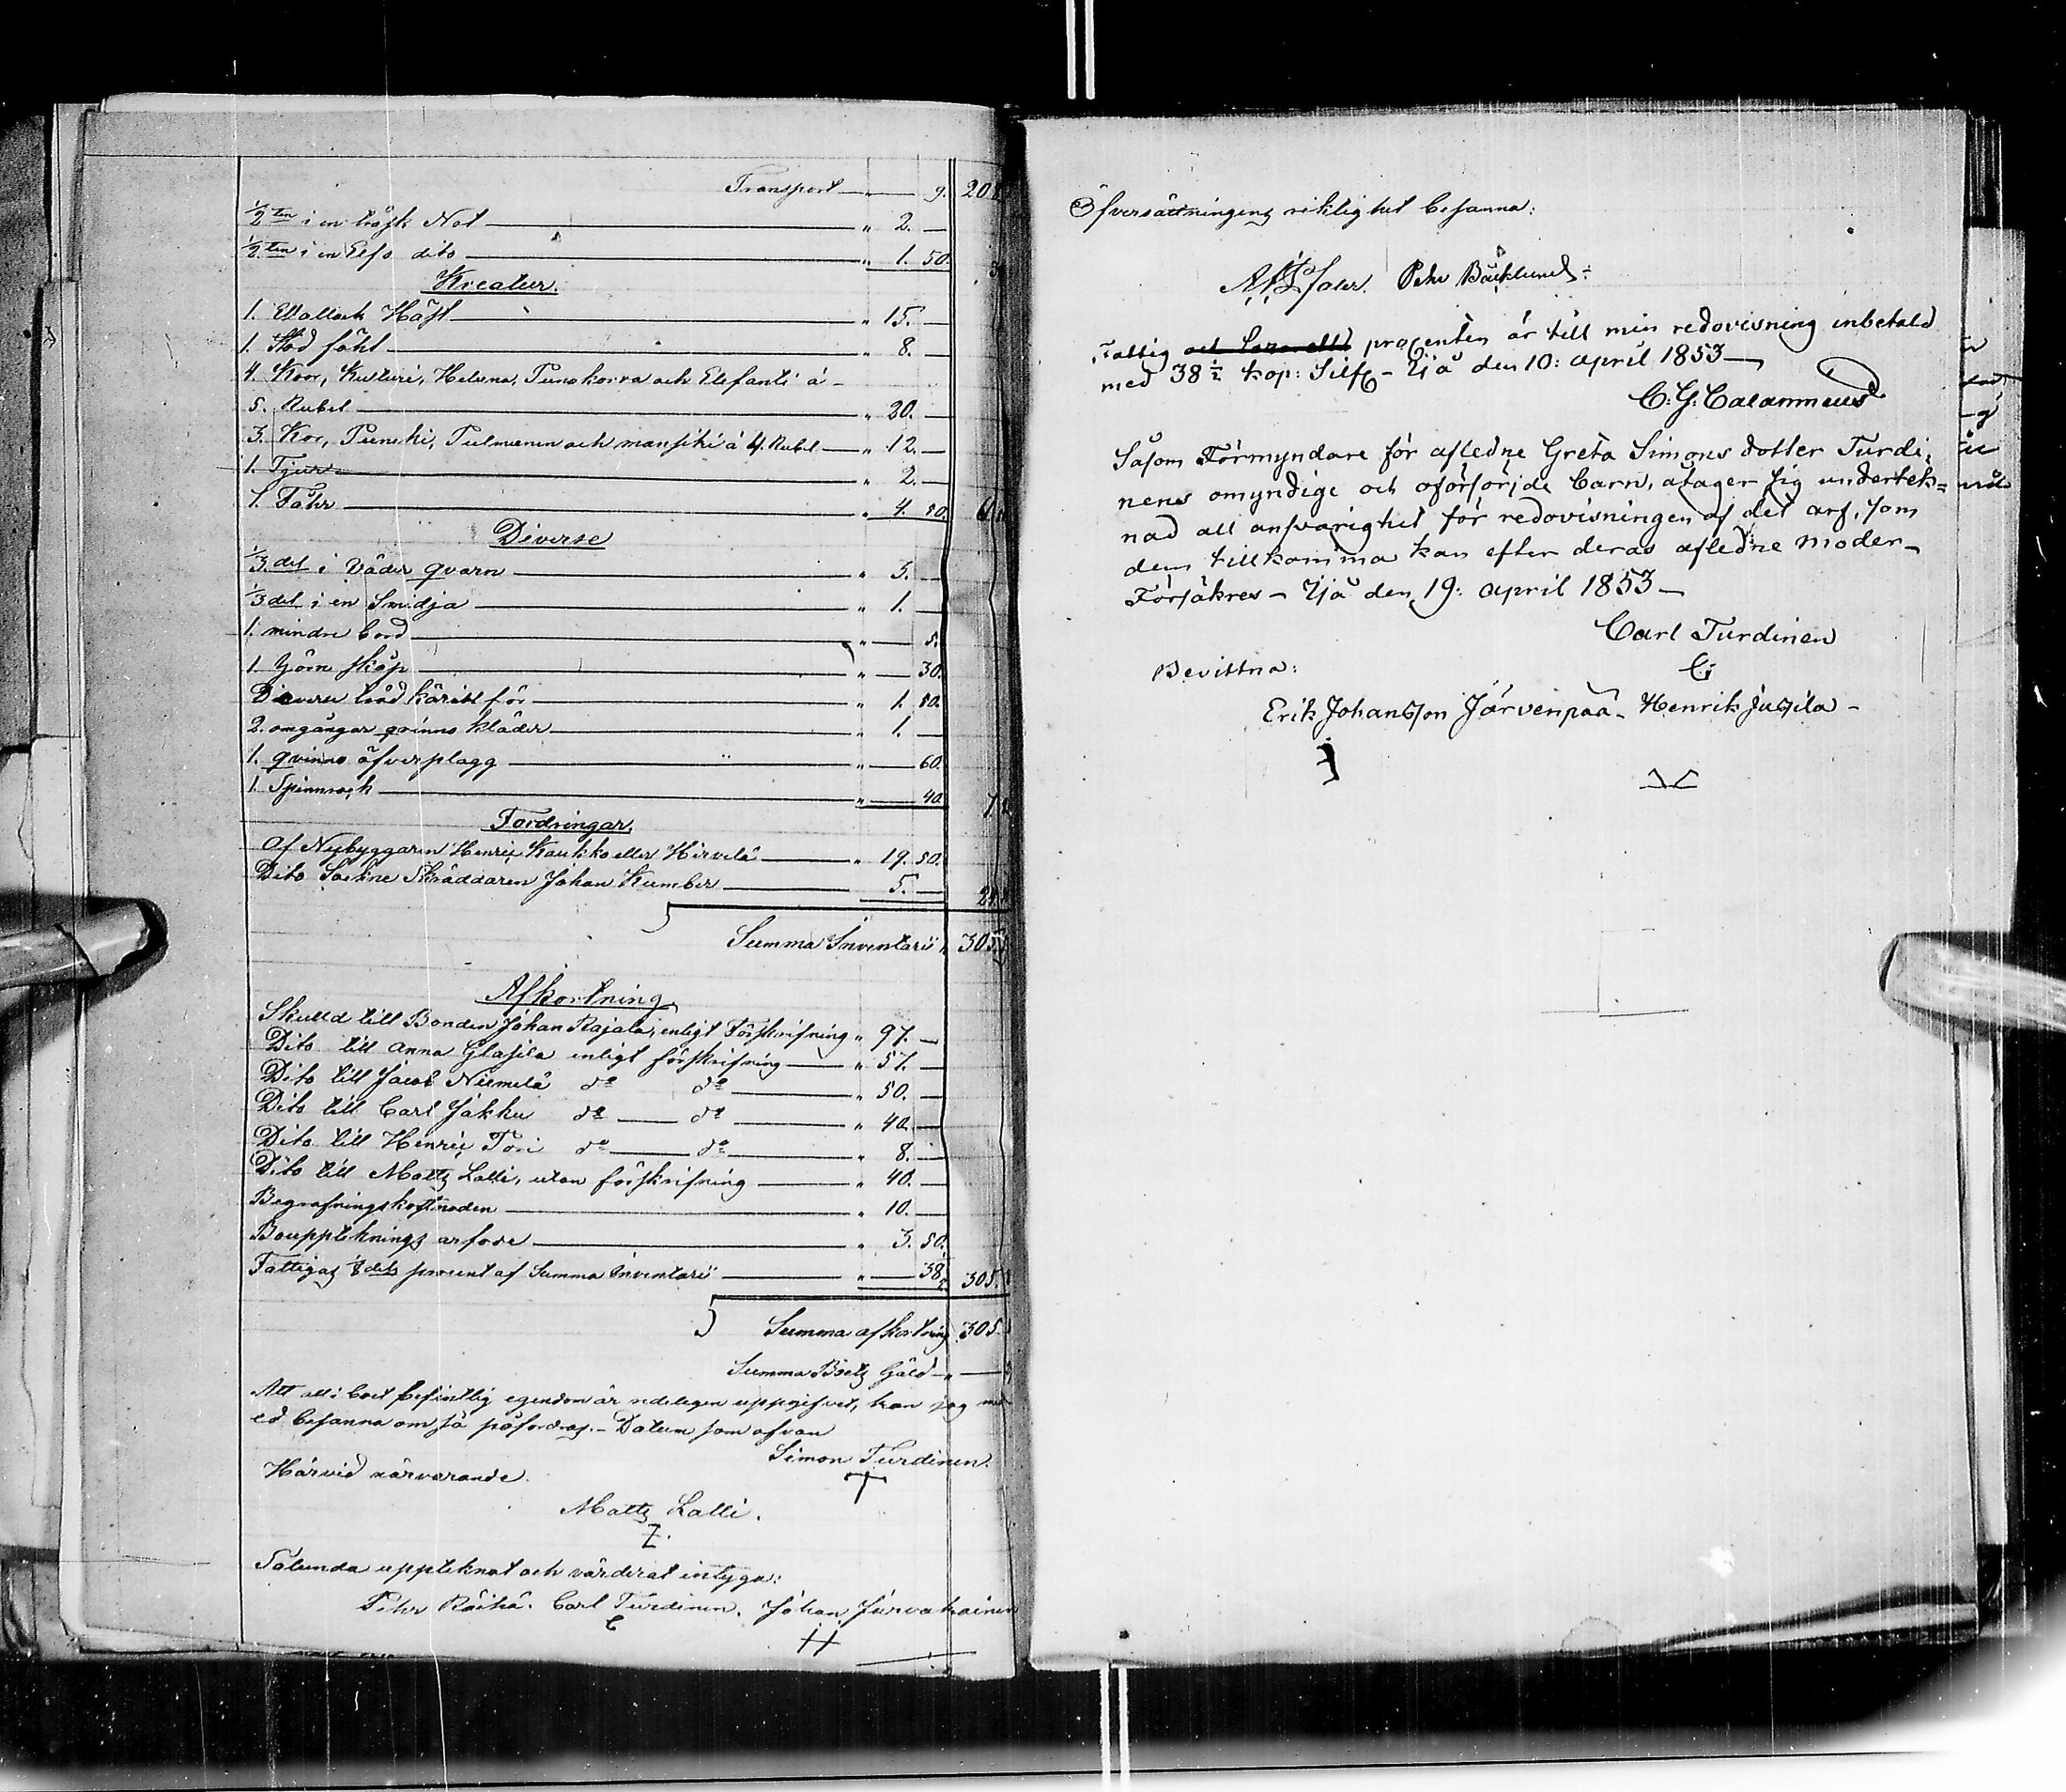 Transport — " — 9. 20
1/2 ten i en träsk Not — " 2. —
1/2 ten i en Elfs dito — " 1. 50.
Kreatur.
1. Wallack Häst — " 15. —
1. Stod föhl — " 8. —
4. Koor, Kulturi, Heluna, Punakorva och Elefanti á —
5. Rubel — " 20. —
3. Kor, Punski, Tulmunen och mansiki á 4. Rubel — " 12. —
1. Tjur — " 2. —
1. Fåhr — " 4. 80.
Diverse
1/3 del i Väder qvarn — " 5. —
1/3 del i en Smidja — " 1. —
1. mindre bord — " — 5.
1. Hörn skåp — " — 30.
Diverse träd käril för — " 1. 80.
2. omgångar qvinno kläder — " 1. —
1. qvinno öfverplagg — " — 60.
1. Spinnrock — " — 40.
Fordringar.
Af Nybyggaren Henric Kaukko eller Hirvelä — " 19. 50.
Dito Sockne Skräddaren Johan Kumber — 5. —
Summa Inventarii " 305.
Afkortning
Skulld till Bonden Johan Rajala, enligt Förskrifning " 97. —
Dito till Anna Glasila enligt förskrifning — " 57. —
Dito till Jacob Niemelä do do — " 50. —
Dito till Carl Jakku do — do — " 40. —
Dito till Henric Tori do — do — " 8. —
Dito till Matts Lalli, utan förskrifning — " 40. —
Begrafningskostnaden — " 10. —
Bouppteknings arfode — " 3. 50.
Fattigas 1/8 dels procent af Summa Inventarii — " — 38 1/2 305.
Summa afkortning 305.
Summa Boets Gäld — " —
Att all i boet befintlig egendom är redeligen uppgifvet, kan jag med
ed besanna om så påfordras. — Datum som ofvan
Simon Turdinen.
Härvid närvarande.
Matts Lalli.
Sålunda uppteknat och värderat intyga:
Pehr Räihä. Carl Turdinen. Johan Jurvakainen
Öfversättningens riktighet besanna:
Pehr Bäcklund.
Fattig procenten är till min redovisning inbetald
med 38 1/2 kop: Silfr — Ijå den 10: april 1853 —
C: G: Calamnius
Såsom Förmyndare för aflidne Greta Simons dotter Turdi,
nens omyndige och oförsörjde barn, åtager sig undertek=
nad all ansvarighet för redovisningen af det arf, som
dem tillkomma kan efter deras aflidne moder —
Försäkres — Ijå den 19: april 1853 —
Carl Turdinen
Bevittna:
Erik Johansson Järvenpää — Henrik Jussila —